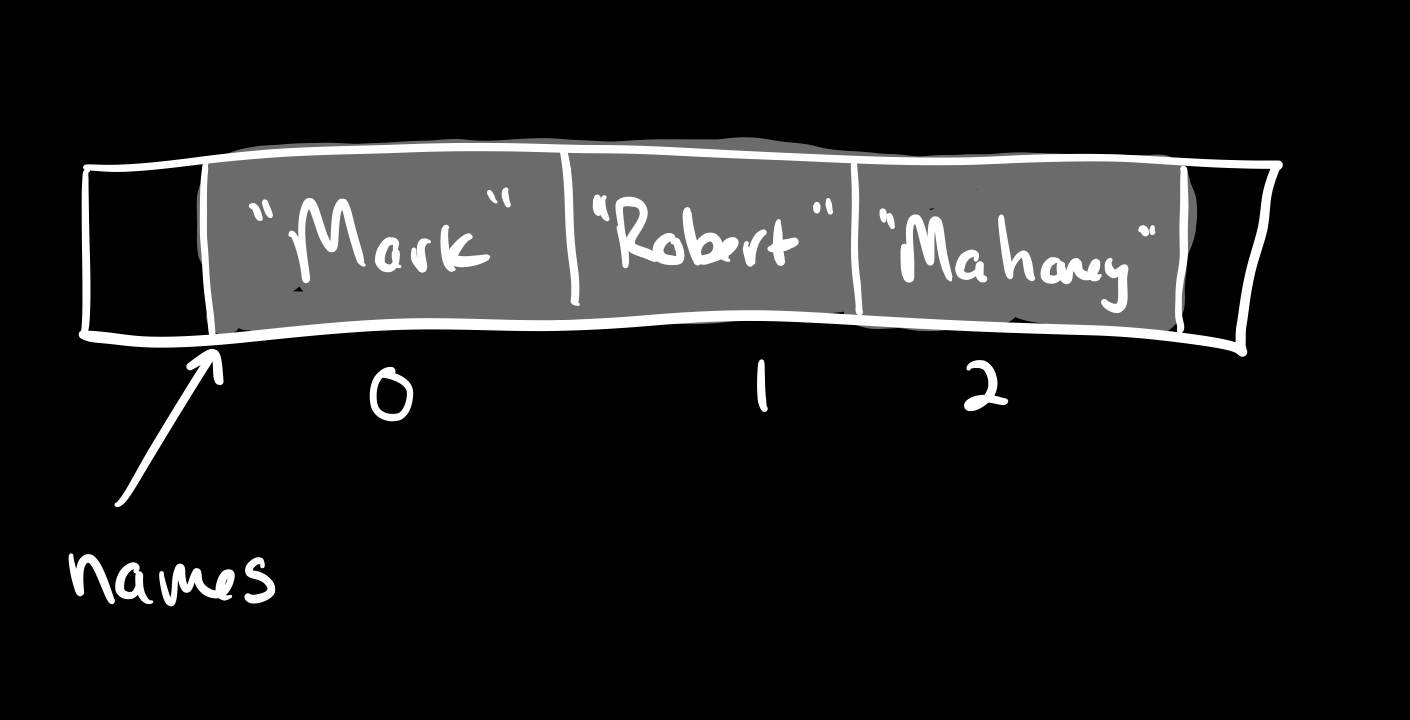 "Mark" "Robert" "Mahoney"
0 1 2
names